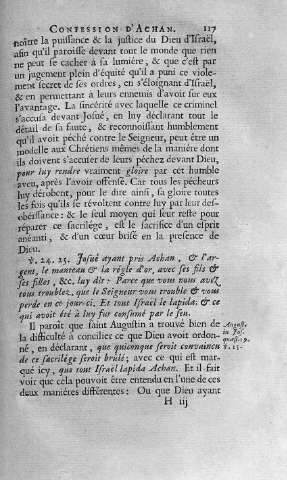 CONFESSION D'ACHAN. 117
noître la puissance & la justice du Dieu d'Israël,
afin qu'il paroisse devant tout le monde que rien
ne peut se cacher à sa lumiére, & que c'est par
un jugement plein d'équité qu'il a puni ce viole-
ment secret de ses ordres, en s'éloignant d'Israël,
& en permettant à leurs ennemis d'avoir sur eux
l'avantage. La sincérité avec laquelle ce criminel
s'accusa devant Josué, en luy déclarant tout le
détail de sa faute, & reconnoissant humblement
qu'il avoit péché contre le Seigneur, peut être un
modelle aux Chrétiens mêmes de la maniére dont
ils doivent s'accuser de leurs péchez devant Dieu,
pour luy rendre vraiment gloire par cet humble
aveu, aprés l'avoir offensé. Car tous les pécheurs
luy dérobent, pour le dire ainsi, sa gloire toutes
les fois qu'ils se révoltent contre luy par leur des-
obéïssance: & le seul moyen qui leur reste pour
réparer ce sacrilége, est le sacrifice d'un esprit
anéanti, & d'un cœur brisé en la presence de
Dieu.
℣. 24. 25. Josué ayant pris Achan, & l'ar-
gent, le manteau & la régle d'or, avec ses fils &
ses filles, &c. luy dit: Parce que vous nous avez
tous troublez, que le Seigneur vous trouble & vous
perde en ce jour-ci. Et tout Israël le lapida: & ce
qui avoit été à luy fut consumé par le feu.
Il paroît que saint Augustin a trouvé bien de
la difficulté à concilier ce que Dieu avoit ordon-
né, en déclarant, que quiconque seroit convaincu
de ce sacrilége seroit brulé; avec ce qui est mar-
qué icy, que tout Israël lapida Achan. Et il fait
voir que cela pouvoit être entendu en l'une de ces
deux maniéres différentes: Ou que Dieu ayant
H iij
August.
in Jos.
quæst. 9.
℣. 15.